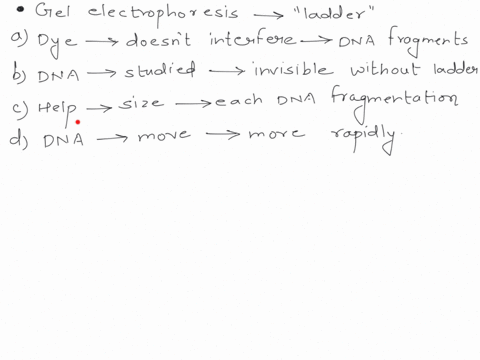 • Gel electrophoresis → "ladder"
a) Dye → doesn't interfere → DNA fragments
b) DNA → studied → invisible without ladder
c) Help → size → each DNA fragmentation
d) DNA → move → more rapidly.